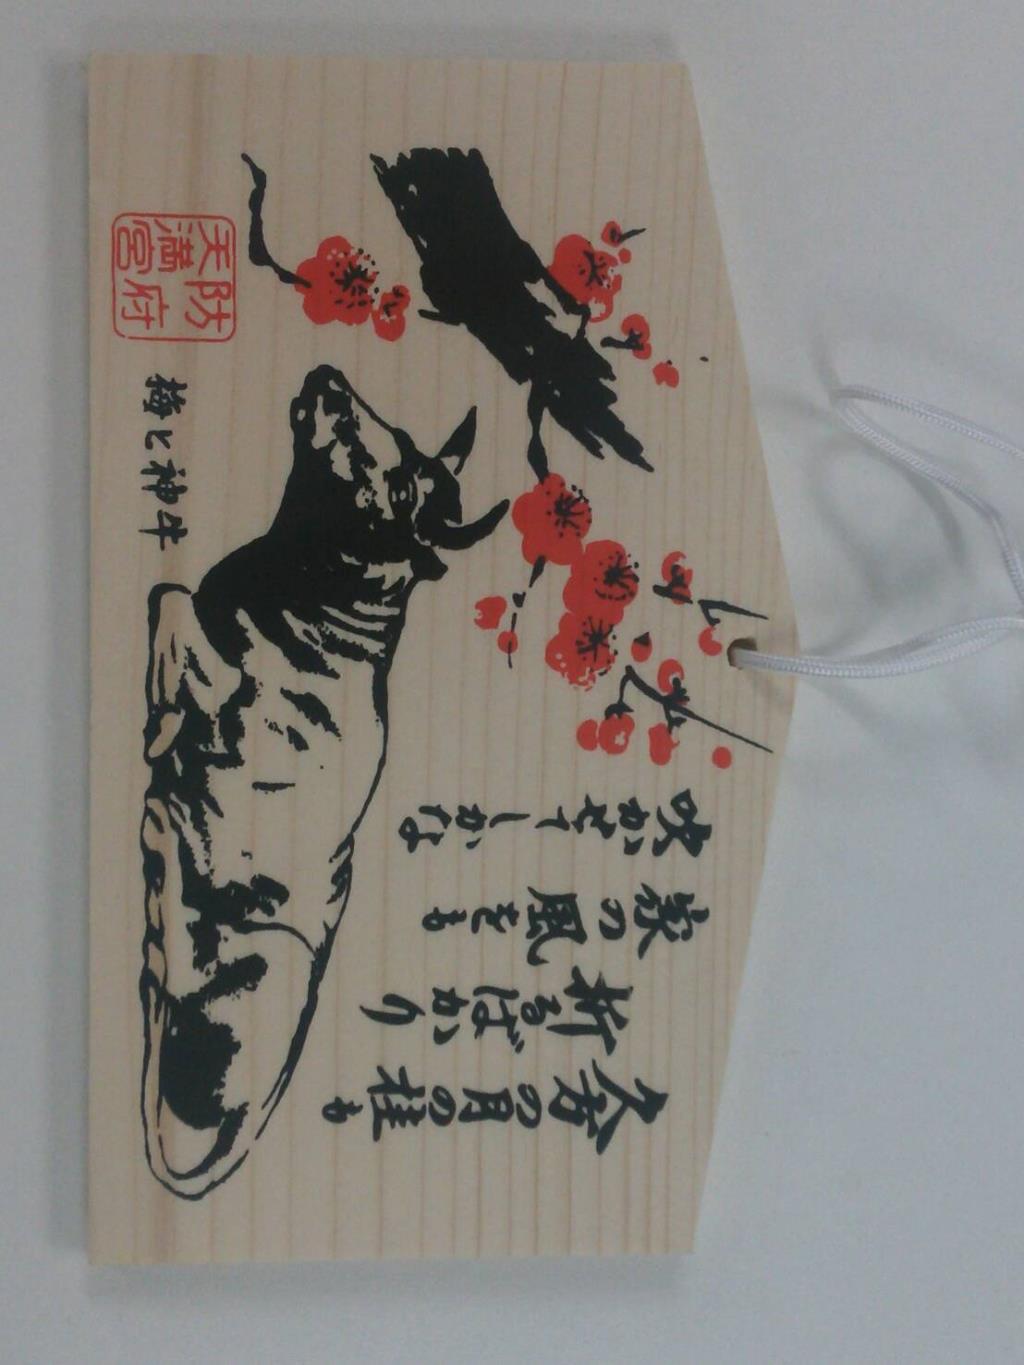 久方の月の桂も
折るばかり
家の風をも
吹かせてしかな
梅と神牛
防府
天満宮